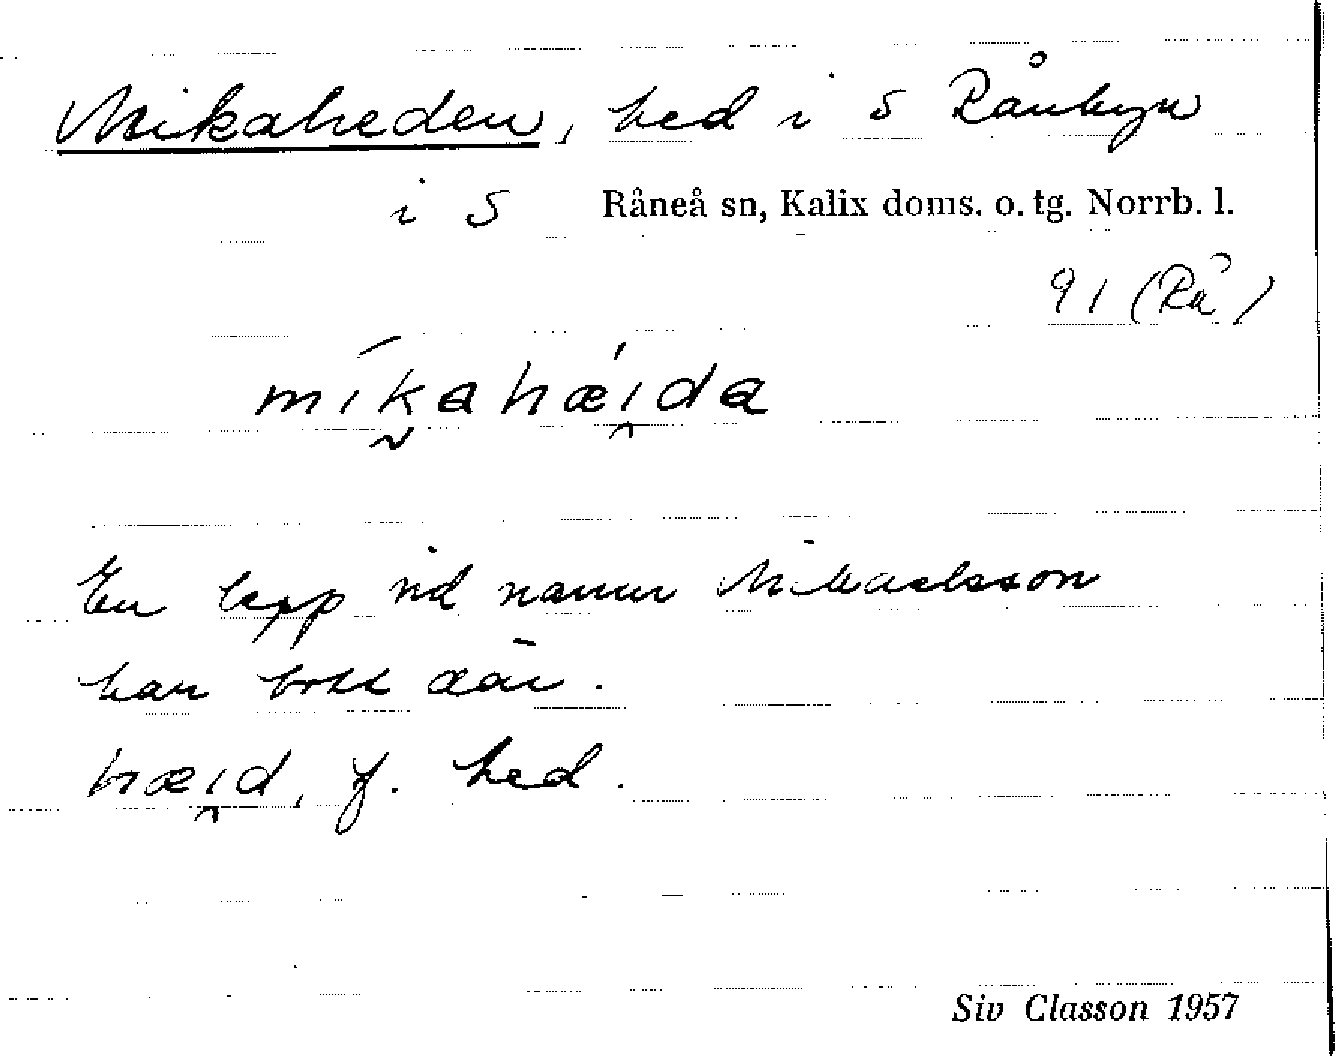 Mikaheden, hed i S Rånbyn
i S Råneå sn, Kalix doms. o. tg. Norrb. l.
91 (Rå)
mika hæida
En lapp vid namn Mikaelsson
har bott där.
hæid, f. hed.
Siv Classon 1957